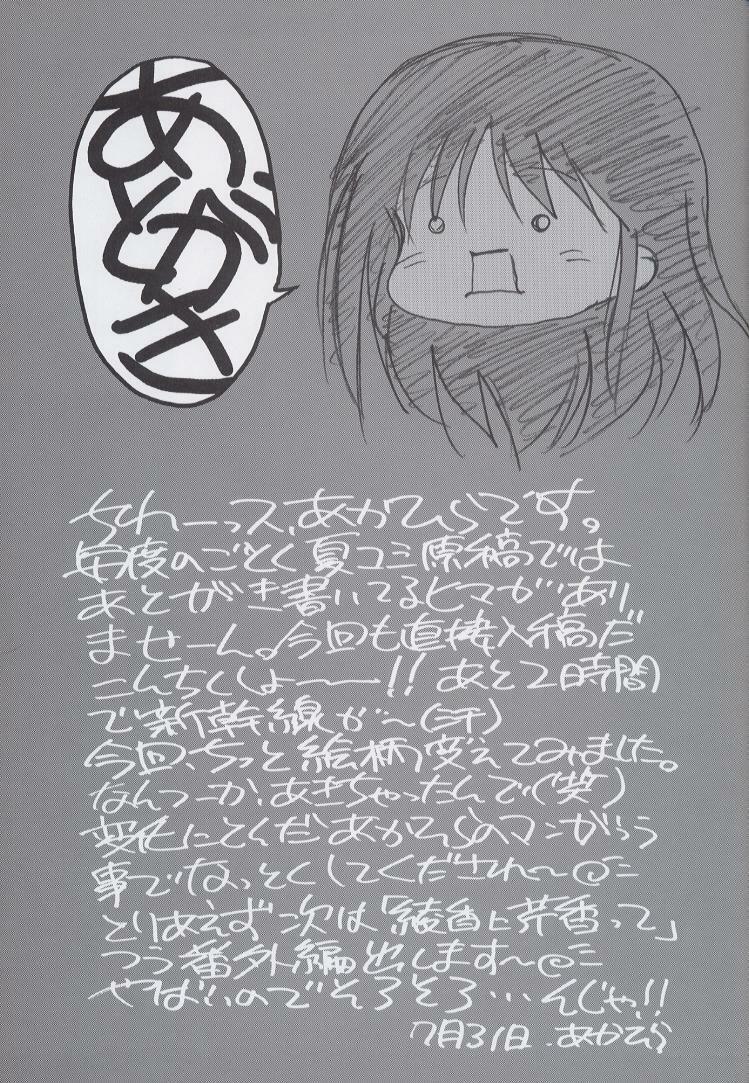 あとがき
ちわーっス、あかひらです。
毎度のごとく夏コミ原稿では
あとがき書いてるヒマがあり
ませーん。今回も直接入稿だ
こんちくしょー――!! あと2時間
で新幹線が～(汗)
今回、ちっと絵柄変えてみました。
なんつーか、あきちゃったんで(笑)
変化にとんだあかひらのマンがっつう
事でなっとくしてくだされ～
とりあえず次は「綾香と芹香って」
つう番外編出します～
やばいのでそろそろ…んじゃ!!
7月31日. あかひら